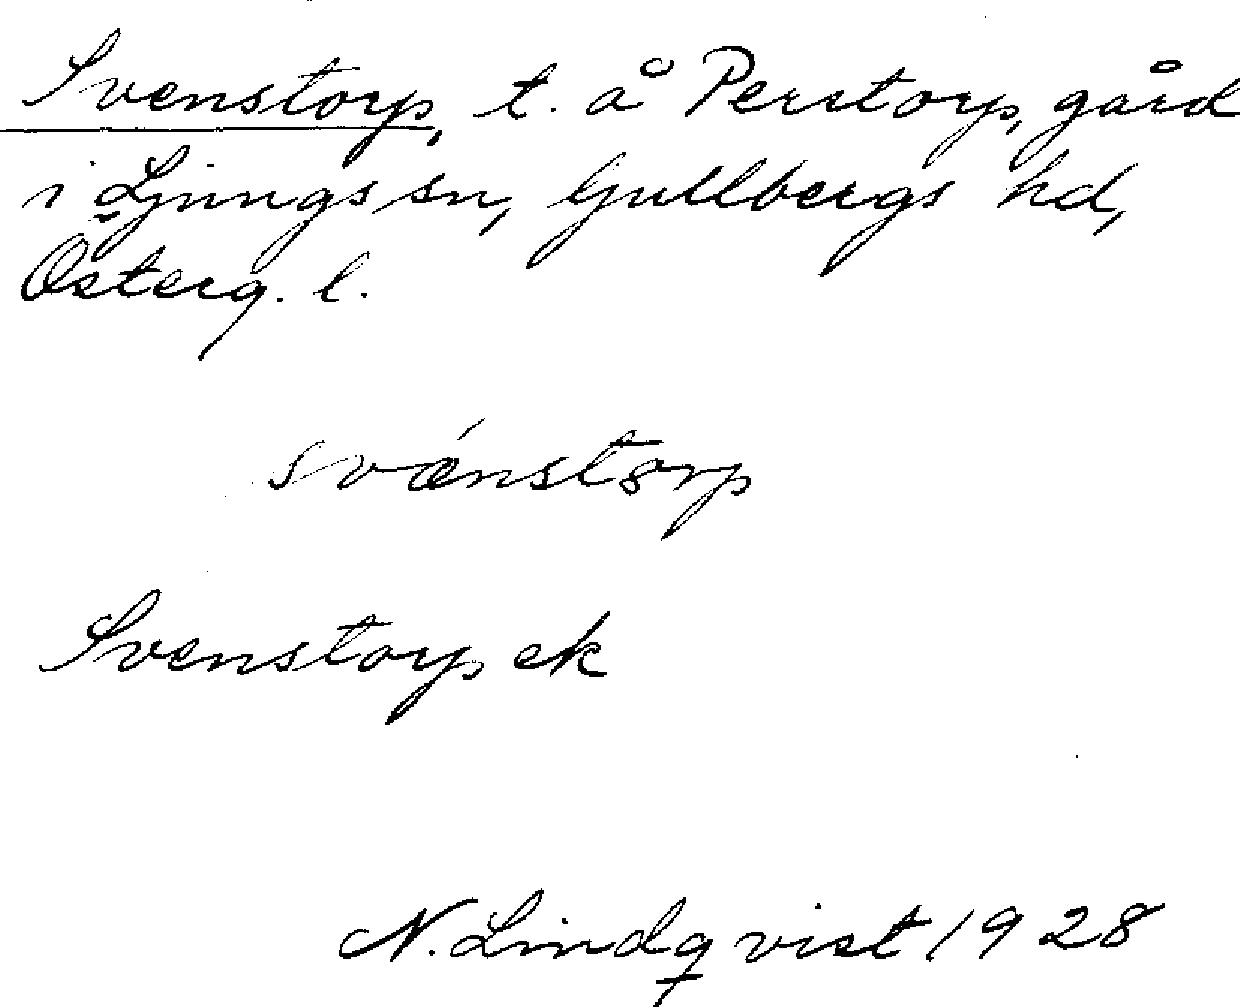 Svenstorp, t. å Perstorp, gård
i Ljungs sn, Gullbergs hd,
Österg. l.
svǽnstorp
Svenstorp ek
N. Lindqvist 1928